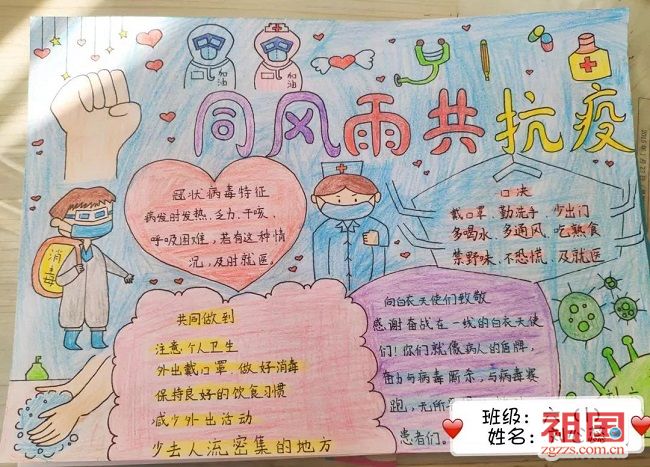 加油
加油
同风雨共抗疫
冠状病毒特征
病发时发热、乏力、干咳、
呼吸困难,若有这种情
况,及时就医。
口决
戴口罩、勤洗手、少出门
多喝水、多通风、吃熟食
禁野味、不恐慌、及就医
消毒
共同做到
注意个人卫生
外出戴口罩 做好消毒
保持良好的饮食习惯
减少外出活动
少去人流密集的地方
向白衣天使们致敬
感谢奋战在一线的白衣天使
们!你们就像病人的盾牌,
与病毒
,与病毒赛
跑,无所
患者们。
班级:
姓名:
祖国
zgzzs.com.cn